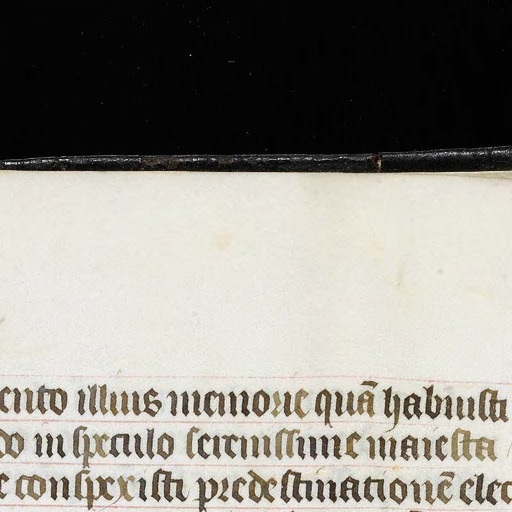 ento illius memorie quā habuisti
do in speculo serenissime maiesta
e conspexisti predestinationē elec